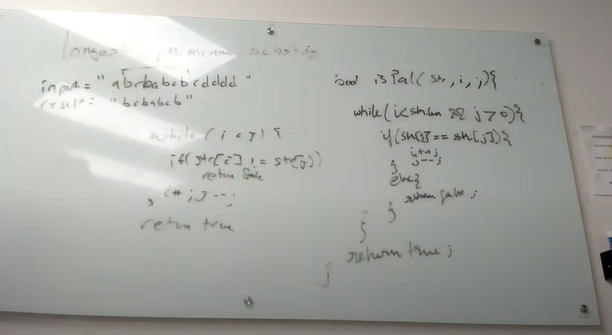 longest palindrome substring
input = "abcbabcbcdddd"
result = "bcbabcb"
while (i < j) {
if (str[i] != str[j])
return false
} i++; j--;
return true
bool isPal (str, i, j) {
while (i < strlen && j > 0) {
if (str[i] == str[j]) {
i++;
} j--;
else {
return false;
}
}
return true;
}